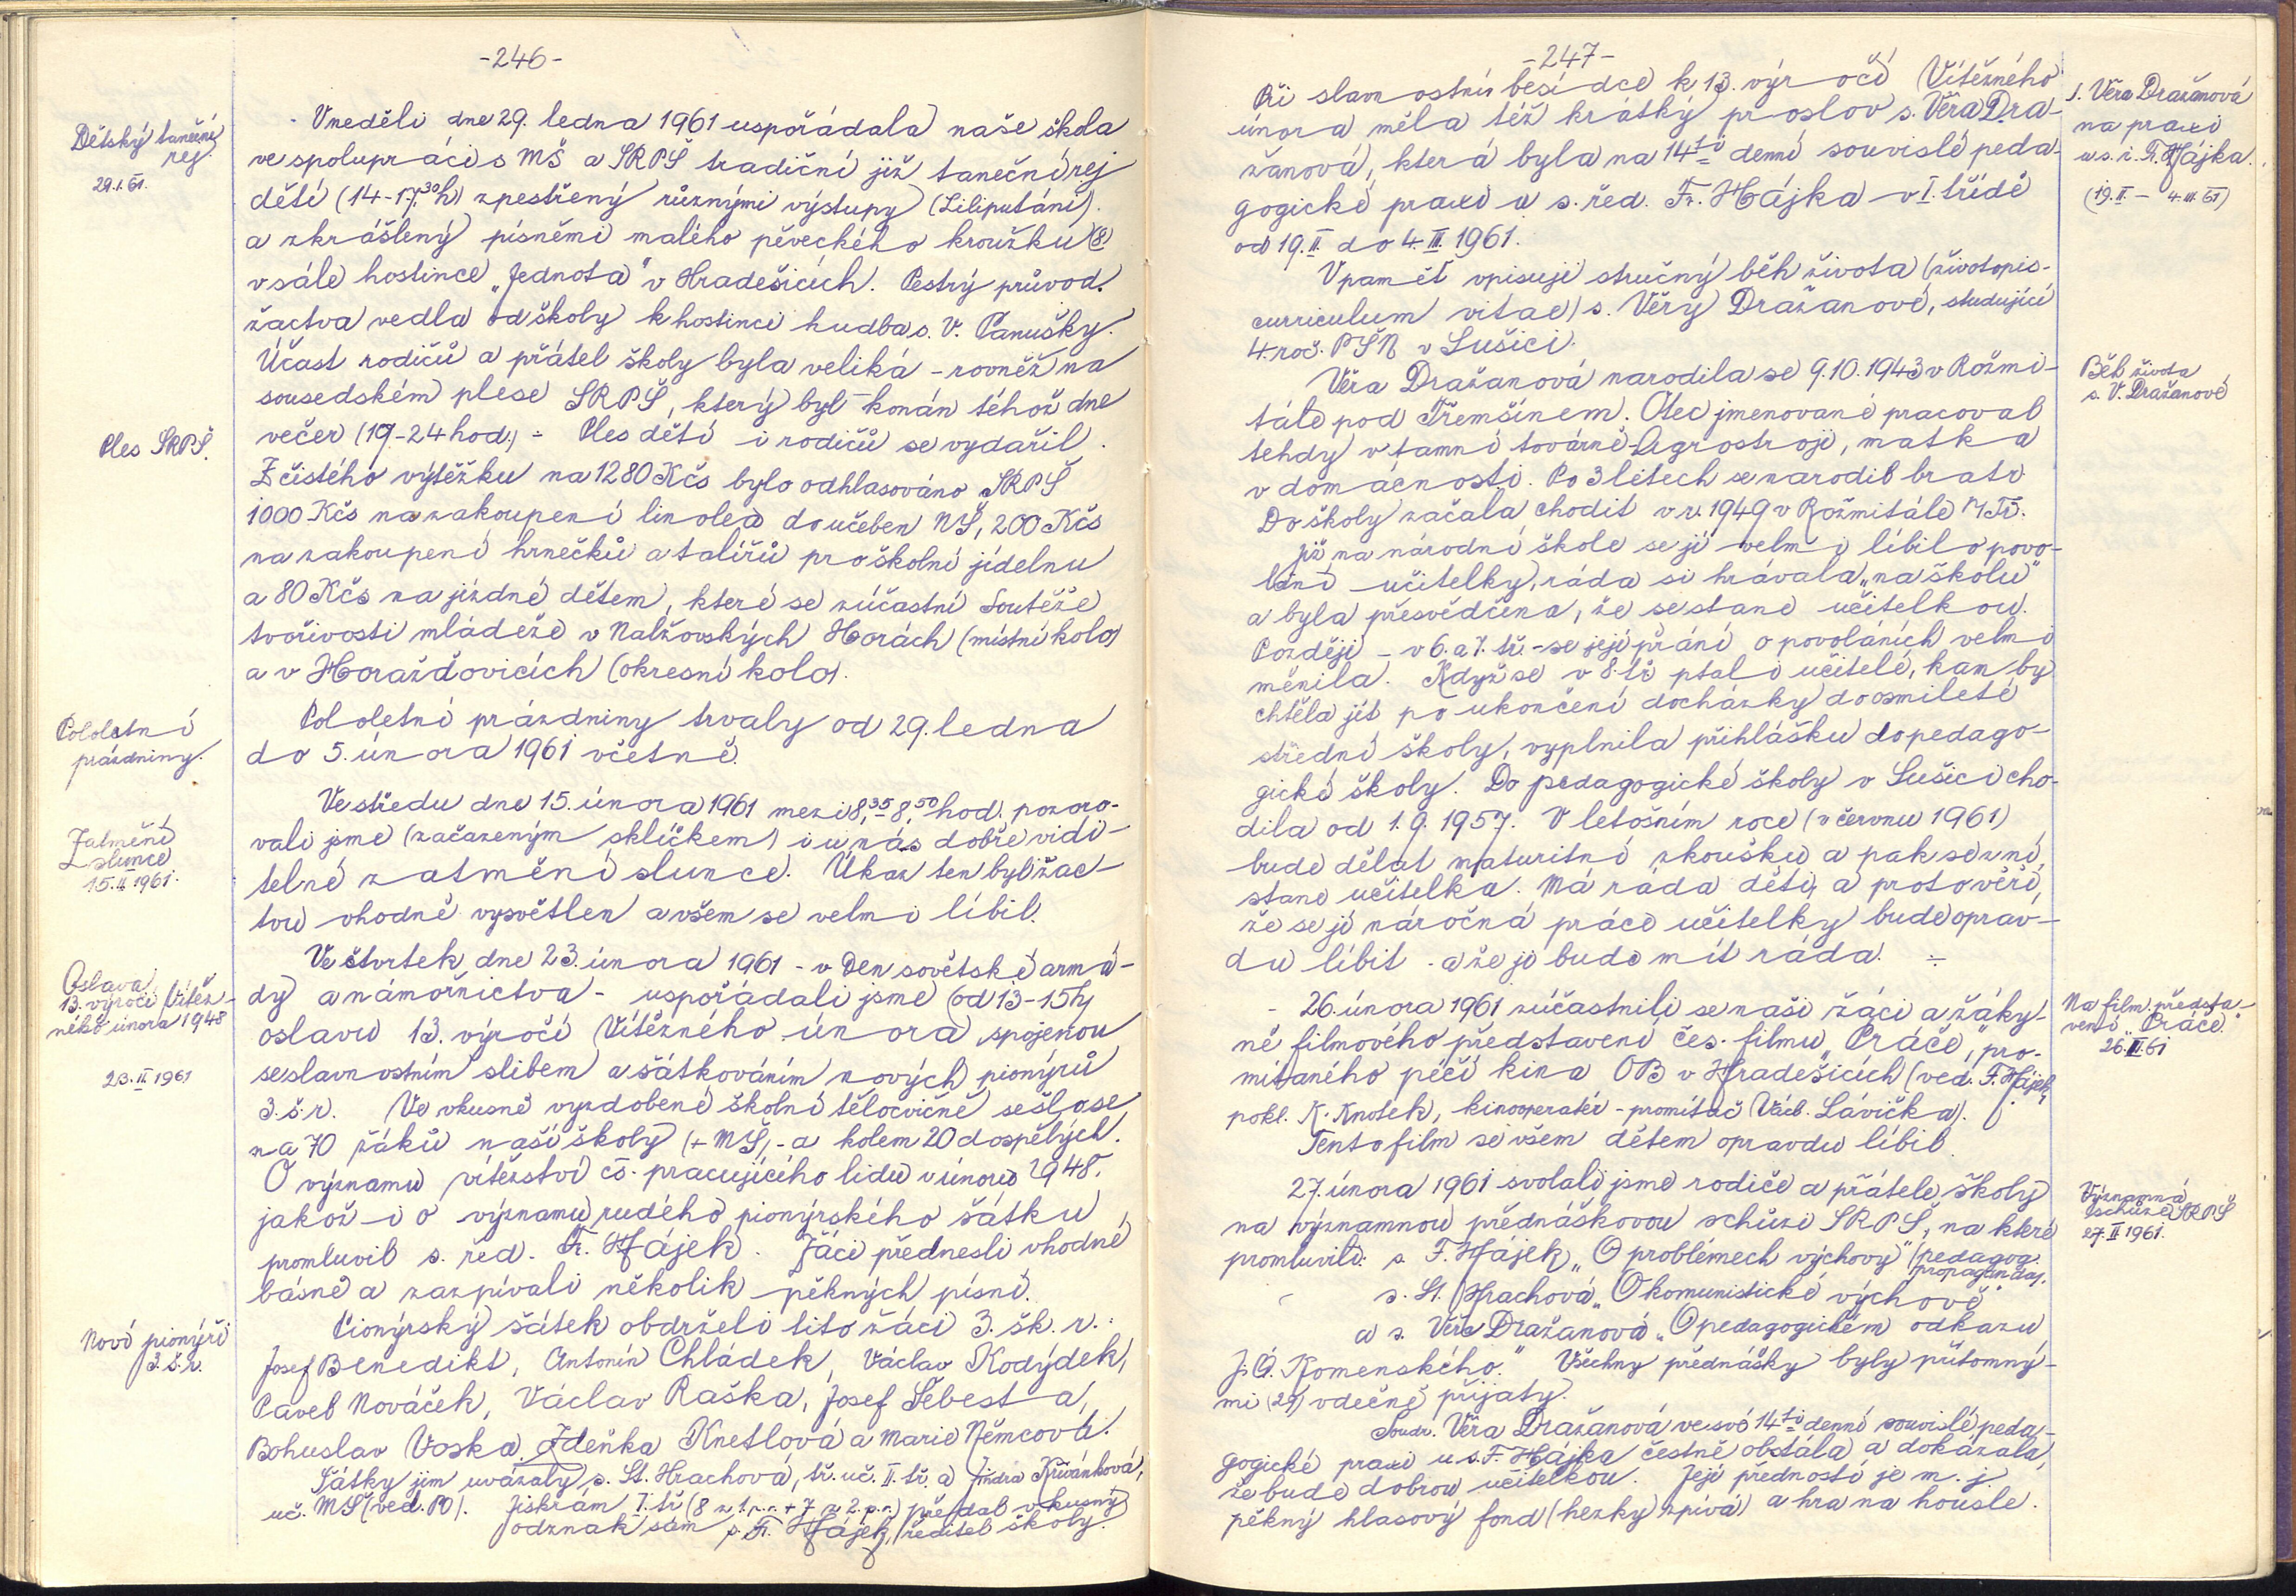 -246-
Dětský taneční
rej.
29.1.61.
V neděli dne 29. ledna 1961 uspořádala naše škola
ve spolupráci s MŠ a SRPŠ tradiční již taneční rej
dětí (14-17,30 h) zpestřený různými výstupy (Liliputáni)
a zkrášlený písněmi malého pěveckého kroužku (8)
v sále hostince „Jednota" v Hradešicích. Pestrý průvod
žactva vedla od školy k hostinci hudba s. V. Panušky.
Účast rodičů a přátel školy byla veliká - rovněž na
sousedském plese SRPŠ, který byl konán téhož dne
Ples SRPŠ.
večer (19-24 hod.) - Ples dětí i rodičů se vydařil.
Z čistého výtěžku na 1280 Kčs bylo odhlasováno SRPŠ
1000 Kčs na zakoupení linolea do učeben NŠ, 200 Kčs
na zakoupení hrnečků a talířů pro školní jídelnu
a 80 Kčs na jízdné dětem, které se zúčastní Soutěže
tvořivosti mládeže v Nalžovských Horách (místní kolo)
a v Horažďovicích (okresní kolo).
Pololetní
prázdniny.
Pololetní prázdniny trvaly od 29. ledna
do 5. února 1961 včetně.
Zatmění
slunce
15.II.1961.
Ve středu dne 15. února 1961 mezi 8,35-8,50 hod. pozoro-
vali jsme (začazeným sklíčkem) i u nás dobře vidi-
telné zatmění slunce. Úkaz ten byl žac-
tvu vhodně vysvětlen a všem se velmi líbil.
Oslava
13. výročí Vítěz-
ného února 1948
23.II 1961
Ve čtvrtek dne 23. února 1961 - v Den sovětské armá-
dy a námořnictva - uspořádali jsme (od 13-15h)
oslavu 13. výročí Vítězného února, spojenou
se slavnostním slibem a šátkováním nových pionýrů
3. š. r. Ve vkusně vyzdobené školní tělocvičně sešlo se
na 70 žáků naší školy (+ MŠ) - a kolem 20 dospělých.
O významu vítězství čs. pracujícího lidu v únoru 1948.
jakož i o významu rudého pionýrského šátku
promluvil s. řed. Fr. Hájek. Žáci přednesli vhodné
básně a zazpívali několik pěkných písní.
Noví pionýři
3. š. r.
Pionýrský šátek obdrželi tito žáci 3. šk. r.:
Josef Benedikt, Antonín Chládek, Václav Kodýdek,
Pavel Nováček, Václav Raška, Josef Šebesta,
Bohuslav Voska, Zdeňka Knetlová a Marie Němcová.
Šátky jim uvázaly s. St. Hrachová, tř. uč. II. tř. a Jindra Křivánková,
uč. MŠ (ved. PO). Jiskrám I. tř (8 z 1. p.r. + 7 z 2. p.r.) předal vkusný
odznak sám s. Fr. Hájek, ředitel školy.
-247-
Při slavnostní besídce k 13. výročí Vítězného
února měla též krátký proslov s. Věra Dra-
žanová, která byla na 14ti denní souvislé peda-
gogické praxi u s. řed. Fr. Hájka v I. třídě
od 19.II. do 4.III. 1961.
s. Věra Dražanová
na praxi
u s. ř. Fr. Hájka.
(19.II. - 4.III.61)
V paměť vpisuji stručný běh života (životopis-
curriculum vitae) s. Věry Dražanové, studující
4. roč. PŠN v Sušici.
Běh života
s. V. Dražanové
Věra Dražanová narodila se 9.10.1943 v Rožmi-
tále pod Třemšínem. Otec jmenované pracoval
tehdy v tamní továrně Agrostroji, matka
v domácnosti. Po 3 letech se narodil bratr
Do školy začala chodit v r. 1949 v Rožmitále p/Tř.
Již na národní škole se jí velmi líbilo povo-
lání učitelky, ráda si hrávala „na školu"
a byla přesvědčena, že se stane učitelkou.
Později - v 6. a 7. tř. - se její přání o povoláních velmi
měnila. Když se v 8. tř ptali učitelé, kam by
chtěla jít po ukončení docházky do osmileté
střední školy, vyplnila přihlášku do pedago-
gické školy. Do pedagogické školy v Sušici cho-
dila od 1.9.1957. V letošním roce (v červnu 1961)
bude dělat maturitní zkoušku a pak se z ní
stane učitelka. Má ráda děti, a proto věří,
že se jí náročná práce učitelky bude oprav-
du líbit - a že ji bude mít ráda.
- 26. února 1961 zúčastnili se naši žáci a žáky-
ně filmového představení čes. filmu „Práče", pro-
mítaného péčí kina OB v Hradešicích (ved. F. Hájek,
pokl. K. Knotek, kinooperatér - promítač Václ. Lávička).
Tento film se všem dětem opravdu líbil.
Na film. předsta-
vení „Práče."
26.II.61
27. února 1961 svolali jsme rodiče a přátele školy
na významnou přednáškovou schůzi SRPŠ, na které
promluvili: s. F. Hájek „O problémech výchovy" (pedagog.
propaganda).
s. St. Hrachová „O komunistické výchově"
a s. Věra Dražanová „O pedagogickém odkazu
J. A. Komenského." Všechny přednášky byly přítomný-
mi (29) vděčně přijaty.
Významná
schůze SRPŠ
27.II 1961.
Soudr. Věra Dražanová ve své 14ti denní souvislé peda-
gogické praxi u s. F. Hájka čestně obstála a dokázala,
že bude dobrou učitelkou. Její předností je m. j.
pěkný hlasový fond (hezky zpívá) a hra na housle.